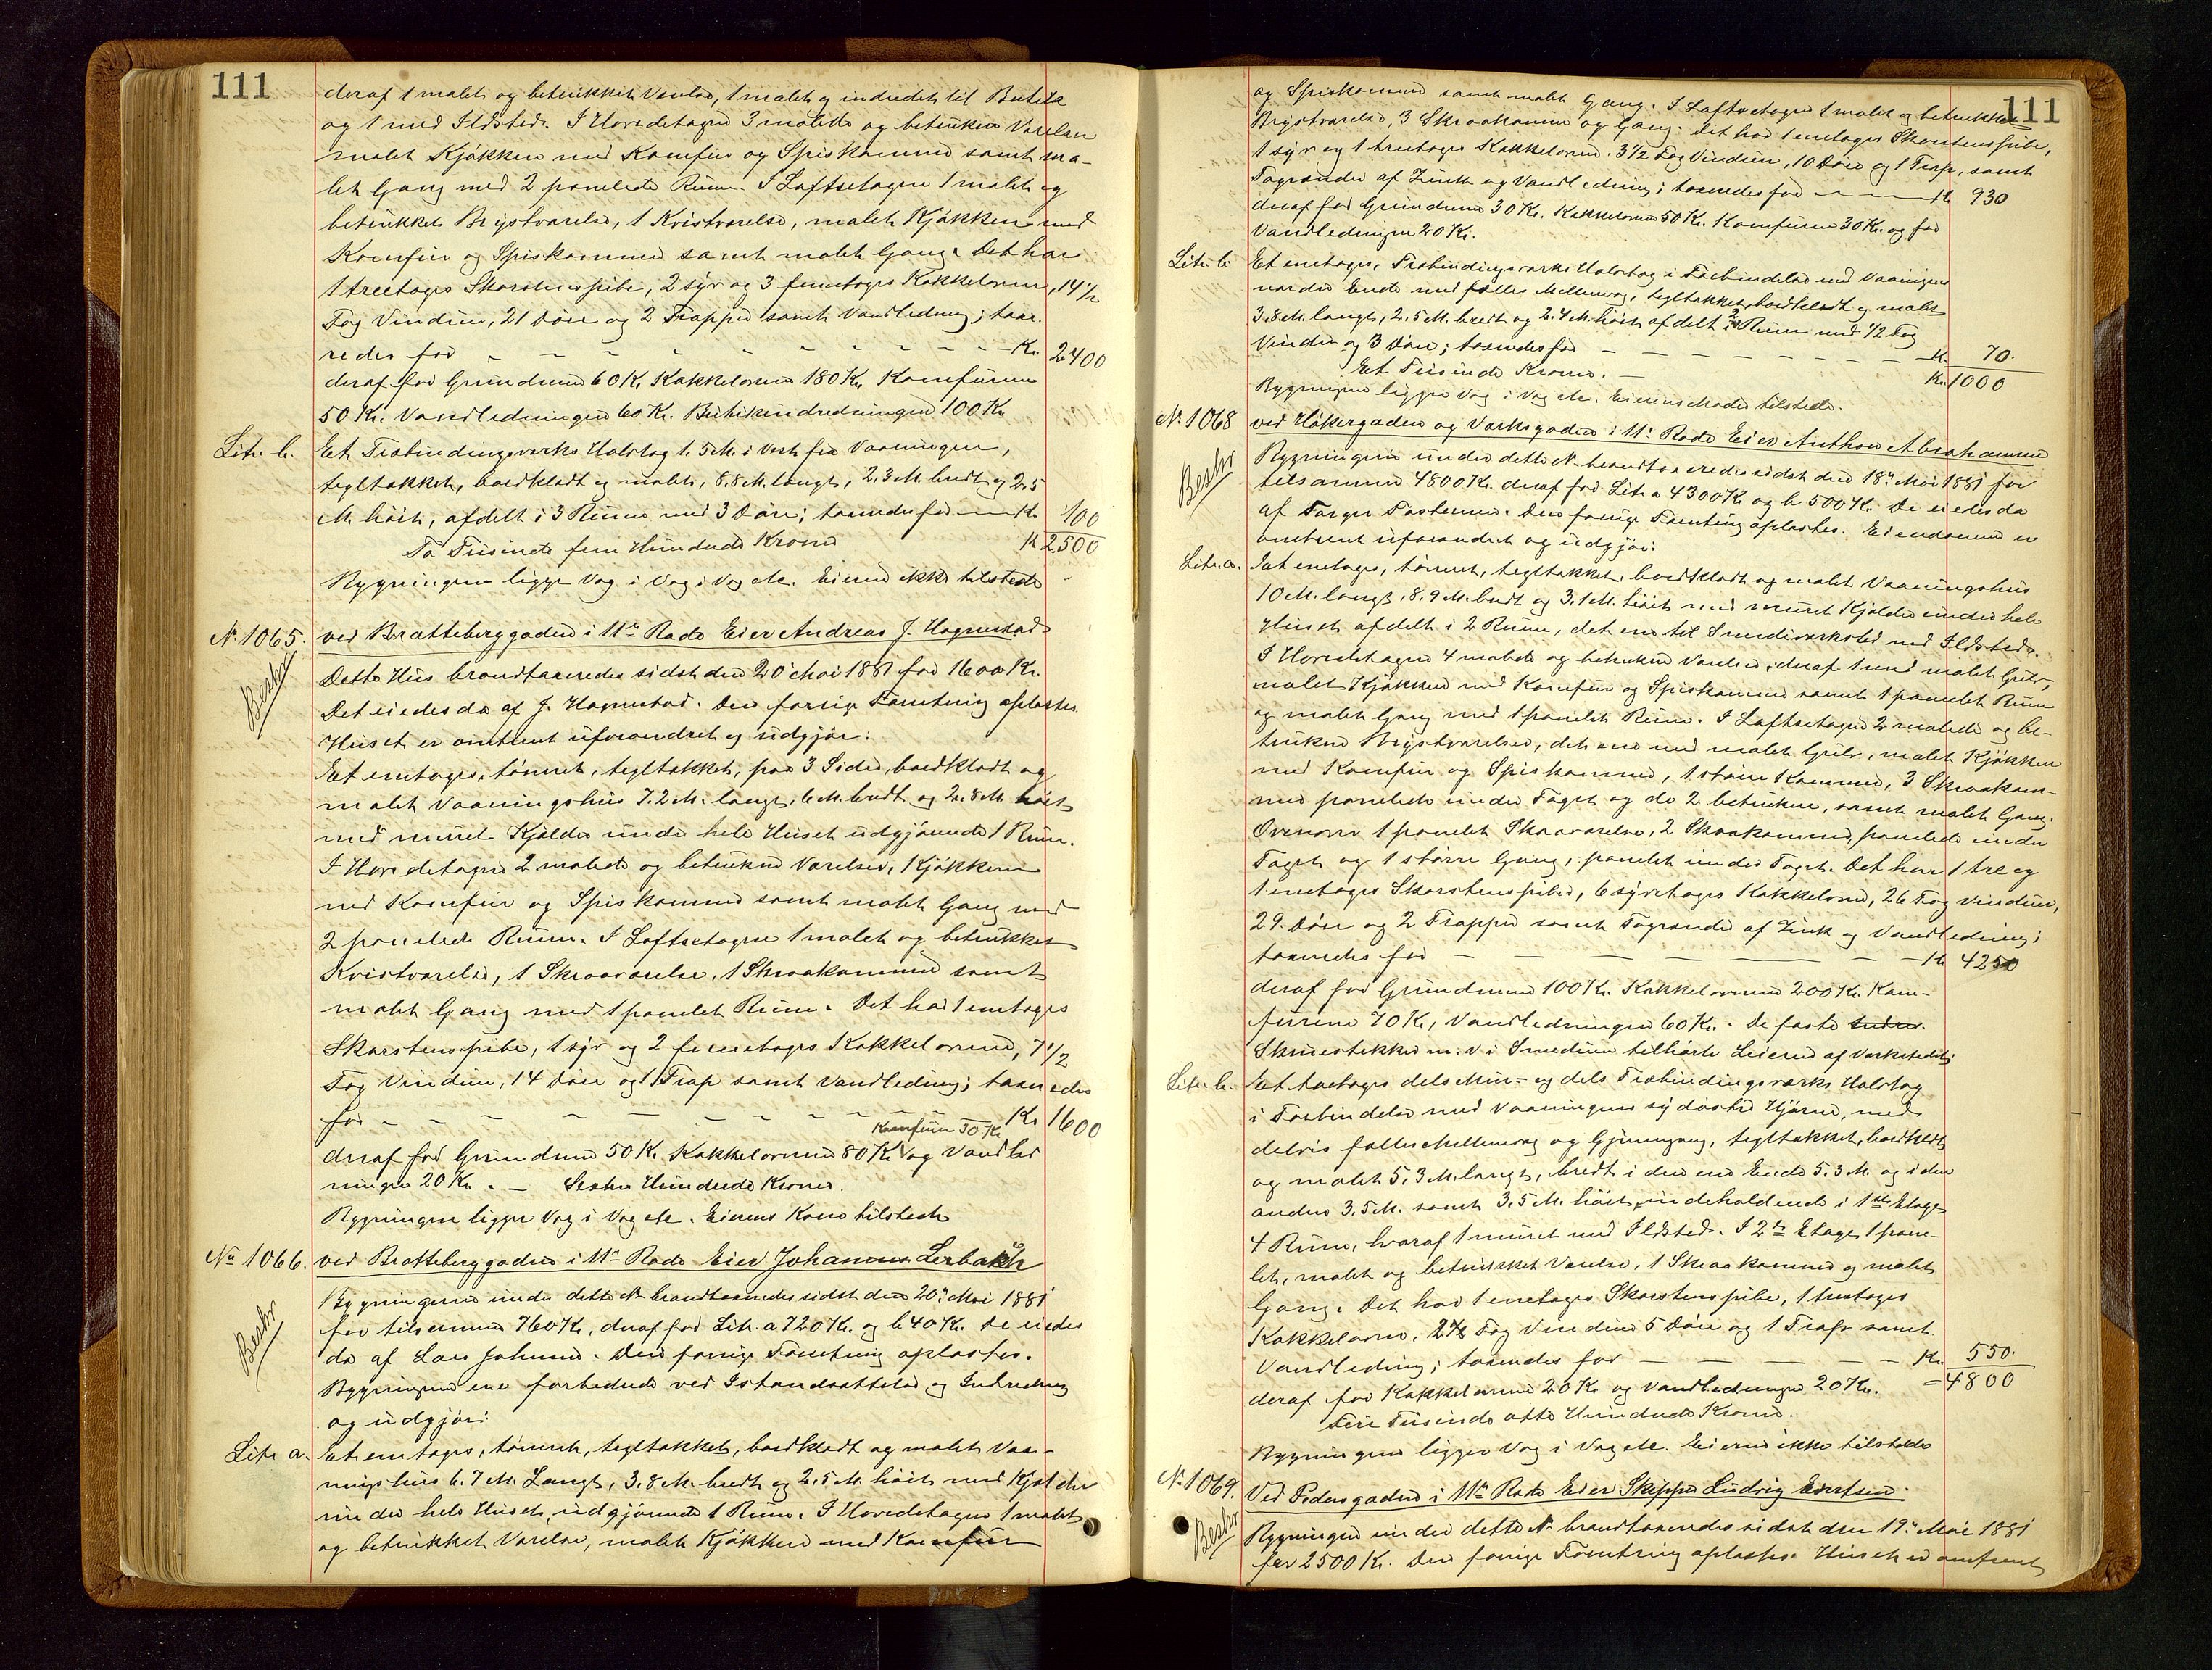 111
deraf 1 malet og betrukket Værelse, 1 malet og indredet til Butik
og 1 med Ildsted. I Hovedetagen 3 malede og betrukne Værelser
malet Kjøkken med Komfur og Spiskammer samt ma-
let Gang med 2 panelede Rum. I Loftsetagen 1 malet og
betrukket Brystværelse, 1 Kvistværelse, malet Kjøkken med
Komfur og Spiskammer samt malet Gang. Det har
1 treetages Skorstenspibe, 2 syv og 3 femetages Kakkelovne, 14 1/2
Fag Vinduer, 21 Døre og 2 Trapper samt Vandledning; taxe-
redes for - - - Kr. 2400
deraf for Grundmur 60 Kr. Kakkelovne 180 Kr. Komfurene
50 Kr. Vandledningen 60 Kr. Butikindredningen 100 Kr.
Litr. b. Et Træbindingsværks Halvtag 1.5 M. i Vest fra Vaaningen,
tegltækket, bordklædt og malet, 8.8 M. langt, 2.3 M. bredt og 2.5
M. høit, afdelt i 3 Rum med 3 Døre; taxeredes for - Kr. 100
To Tusinde fem Hundrede Kroner Kr. 2500
Bygningerne ligger Væg i Væg etc. Eieren ikke tilstede
No. 1065. ved Bratteberggaden i 11te Rode Eier Andreas J. Hagnestad.
Beskr
Dette Hus brandtaxeredes sidst den 20de Mai 1881 for 1600 Kr.
Det eiedes da af J. Hagnestad. Den forrige Taxering oplæstes.
Huset er omtrent uforandret og udgjør:
Et enetages, tømret, tegltækket, paa 3 Sider, bordklædt og
malet Vaaningshus 7.2 M. langt, 6 M. bredt og 2.8 M. høit
med muret Kjelder under hele Huset udgjørende 1 Rum.
I Hovedetagen 2 malede og betrukne Værelser, Kjøkken
med Komfur og Spiskammer samt malet Gang med
2 panelede Rum. I Loftsetagen 1 malet og betrukket
Kvistværelse, 1 Skraaværelse, 1 Skraakammer samt
malet Gang med 1 panelet Rum. Det har 1 enetages
Skorstenspibe, 1 syv og 2 femetages Kakkelovne, 7 1/2
Fag Vinduer, 14 Døre og 1 Trap samt Vandledning; taxeredes
for - - - Kr. 1600
Komfuren 30 Kr.
deraf for Grundmur 50 Kr. Kakkelovne 80 Kr. og Vandled
ningen 20 Kr. - Sexten Hundrede Kroner.
Bygningen ligger Væg i Væg etc. Eierens Kone tilstede
No. 1066. ved Bratteberggaden i 11te Rode Eier Johannes Lerbakk
Beskr
Bygningerne under dette No. brandtaxeredes sidst den 20de Mai 1881
for tilsammen 760 Kr., deraf for Litr. a 720 Kr. og b 40 Kr. De eiedes
da af Lars Johnsen. Den forrige Taxering oplæstes.
Bygningerne ere forbedrede ved Istandsættelse og Indredning
og udgjør:
Litr. a. Et enetages, tømret, tegltækket, bordklædt og malet Vaa-
ningshus 6.7 M. Langt, 3.8 M. bredt og 2.5 M. høit med Kjelder
under hele Huset, udgjørende 1 Rum. I Hovedetagen 1 malet
og betrukket Værelse, malet Kjøkken med Komfur
111
og Spiskammer samt malet Gang. I Loftsetagen 1 malet og betrukket
Brystværelse, 3 Skraakammer og Gang. Det har 1 enetages Skorstenspibe,
1 syv og 1 treetages Kakkelovne. 3 1/2 Fag Vinduer, 10 Døre og 1 Trap, samt
Tagrender af Zink og Vandledning; taxeredes for - - Kr. 930
deraf for Grundmur 30 Kr. Kakkelovne 50 Kr. Komfuren 30 Kr. og for
Vandledningen 20 Kr.
Litr. b. Et enetages, Træbindingsværks Halvtag i Forbindelse med Vaaningens
nordre Ende med fælles Mellemvæg, tegltækket, bordklædt og malet
3.8 M. langt, 2.5 M. bredt og 2.4 M. høit afdelt i 2 Rum med 1/2 Fag
Vindue og 3 Døre; taxeredes for - - - Kr. 70.
Et Tusinde Kroner. - Kr. 1000
Bygningerne ligger Væg i Væg etc. Eierens Moder tilstede.
No. 1068 ved Høkergaden og Verksgaden i 11te Rode Eier Anthon Abrahamsen
Beskr
Bygningerne under dette No. brandtaxeredes sidst den 18de Mai 1881 for
tilsammen 4800 Kr. deraf for Litr. a 4300 Kr. og b 500 Kr. De eiedes da
af Torger Tostensen. Den forrige Taxering oplæstes. Eiendommen er
omtrent uforandret og udgjør:
Litr. a. Et enetages, tømret, tegltækket, bordklædt og malet Vaaningshus
10 M. langt, 8.9 M. bredt og 3.1 M. høit med muret Kjelder under hele
Huset afdelt i 2 Rum, det ene til Smedieværksted med Ildsted.
I Hovedetagen 4 malede og betrukne Værelser, deraf 1 med malet Gulv,
malet Kjøkken med Komfur og Spiskammer samt 1 panelet Rum
og malet Gang med 1 panelet Rum. I Loftsetagen 2 malede og be-
trukne Brystværelser, det ene med malet Gulv, malet Kjøkken
med Komfur og Spiskammer, 1 større Kammer, 3 Skraakam-
mer panelede under Taget og de 2 betrukne, samt malet Gang.
Ovenover 1 panelet Skraaværelse, 2 Skraakammer, panelede under
Taget og 1 større Gang, panelet under Taget. Det har 1 tre og
1 enetages Skorstenspiber, 6 syvetages Kakkelovne, 26 Fag Vinduer,
29. Døre og 2 Trapper samt Tagrender af Zink og Vandledning;
taxeredes for - - - Kr. 4250
deraf for Grundmur 100 Kr. Kakkelovnene 200 Kr. Kom-
furene 70 Kr, Vandledningen 60 Kr. De faste
Skruestikker m. v. i Smedien tilhørte Leieren af Verkstedet;
Litr. b. Et toetages dels Mur- og dels Træbindingsværks Halvtag
i Forbindelse med Vaaningens sydøstre Hjørne, med
delvis fælles Mellemvæg og Gjennemgang, tegltækket, bordklædt
og malet 5.3 M. langt, bredt i den ene Ende 5.3 M. og i den
anden 3.5 M. samt 3.5 M. høit, indeholdende i 1ste Etage
4 Rum, hvoraf 1 muret med Ildsted. I 2den Etage 1 pane-
let, malet og betrukket Værelse, 1 Skraakammer og malet
Gang. Det har 1 enetages Skorstenspibe, 1 treetages
Kakkelovn, 2 1/2 Fag Vinduer 5 Døre og 1 Trap samt
Vandledning; taxeredes for - - - Kr. 550.
deraf for Kakkelovnen 20 Kr. og Vandledningen 20 Kr. = 4800
Fire Tusinde otte Hundrede Kroner.
Bygningerne ligger Væg i Væg etc. Eieren ikke tilstede
No. 1069. Ved Pedersgaden i 11te Rode Eier Skipper Ludvig Evertsen.
Beskr
Bygningen under dette No. brandtaxeredes sidst den 19de Mai 1881
for 2500 Kr. Den forrige Taxering oplæstes. Huset er omtrent